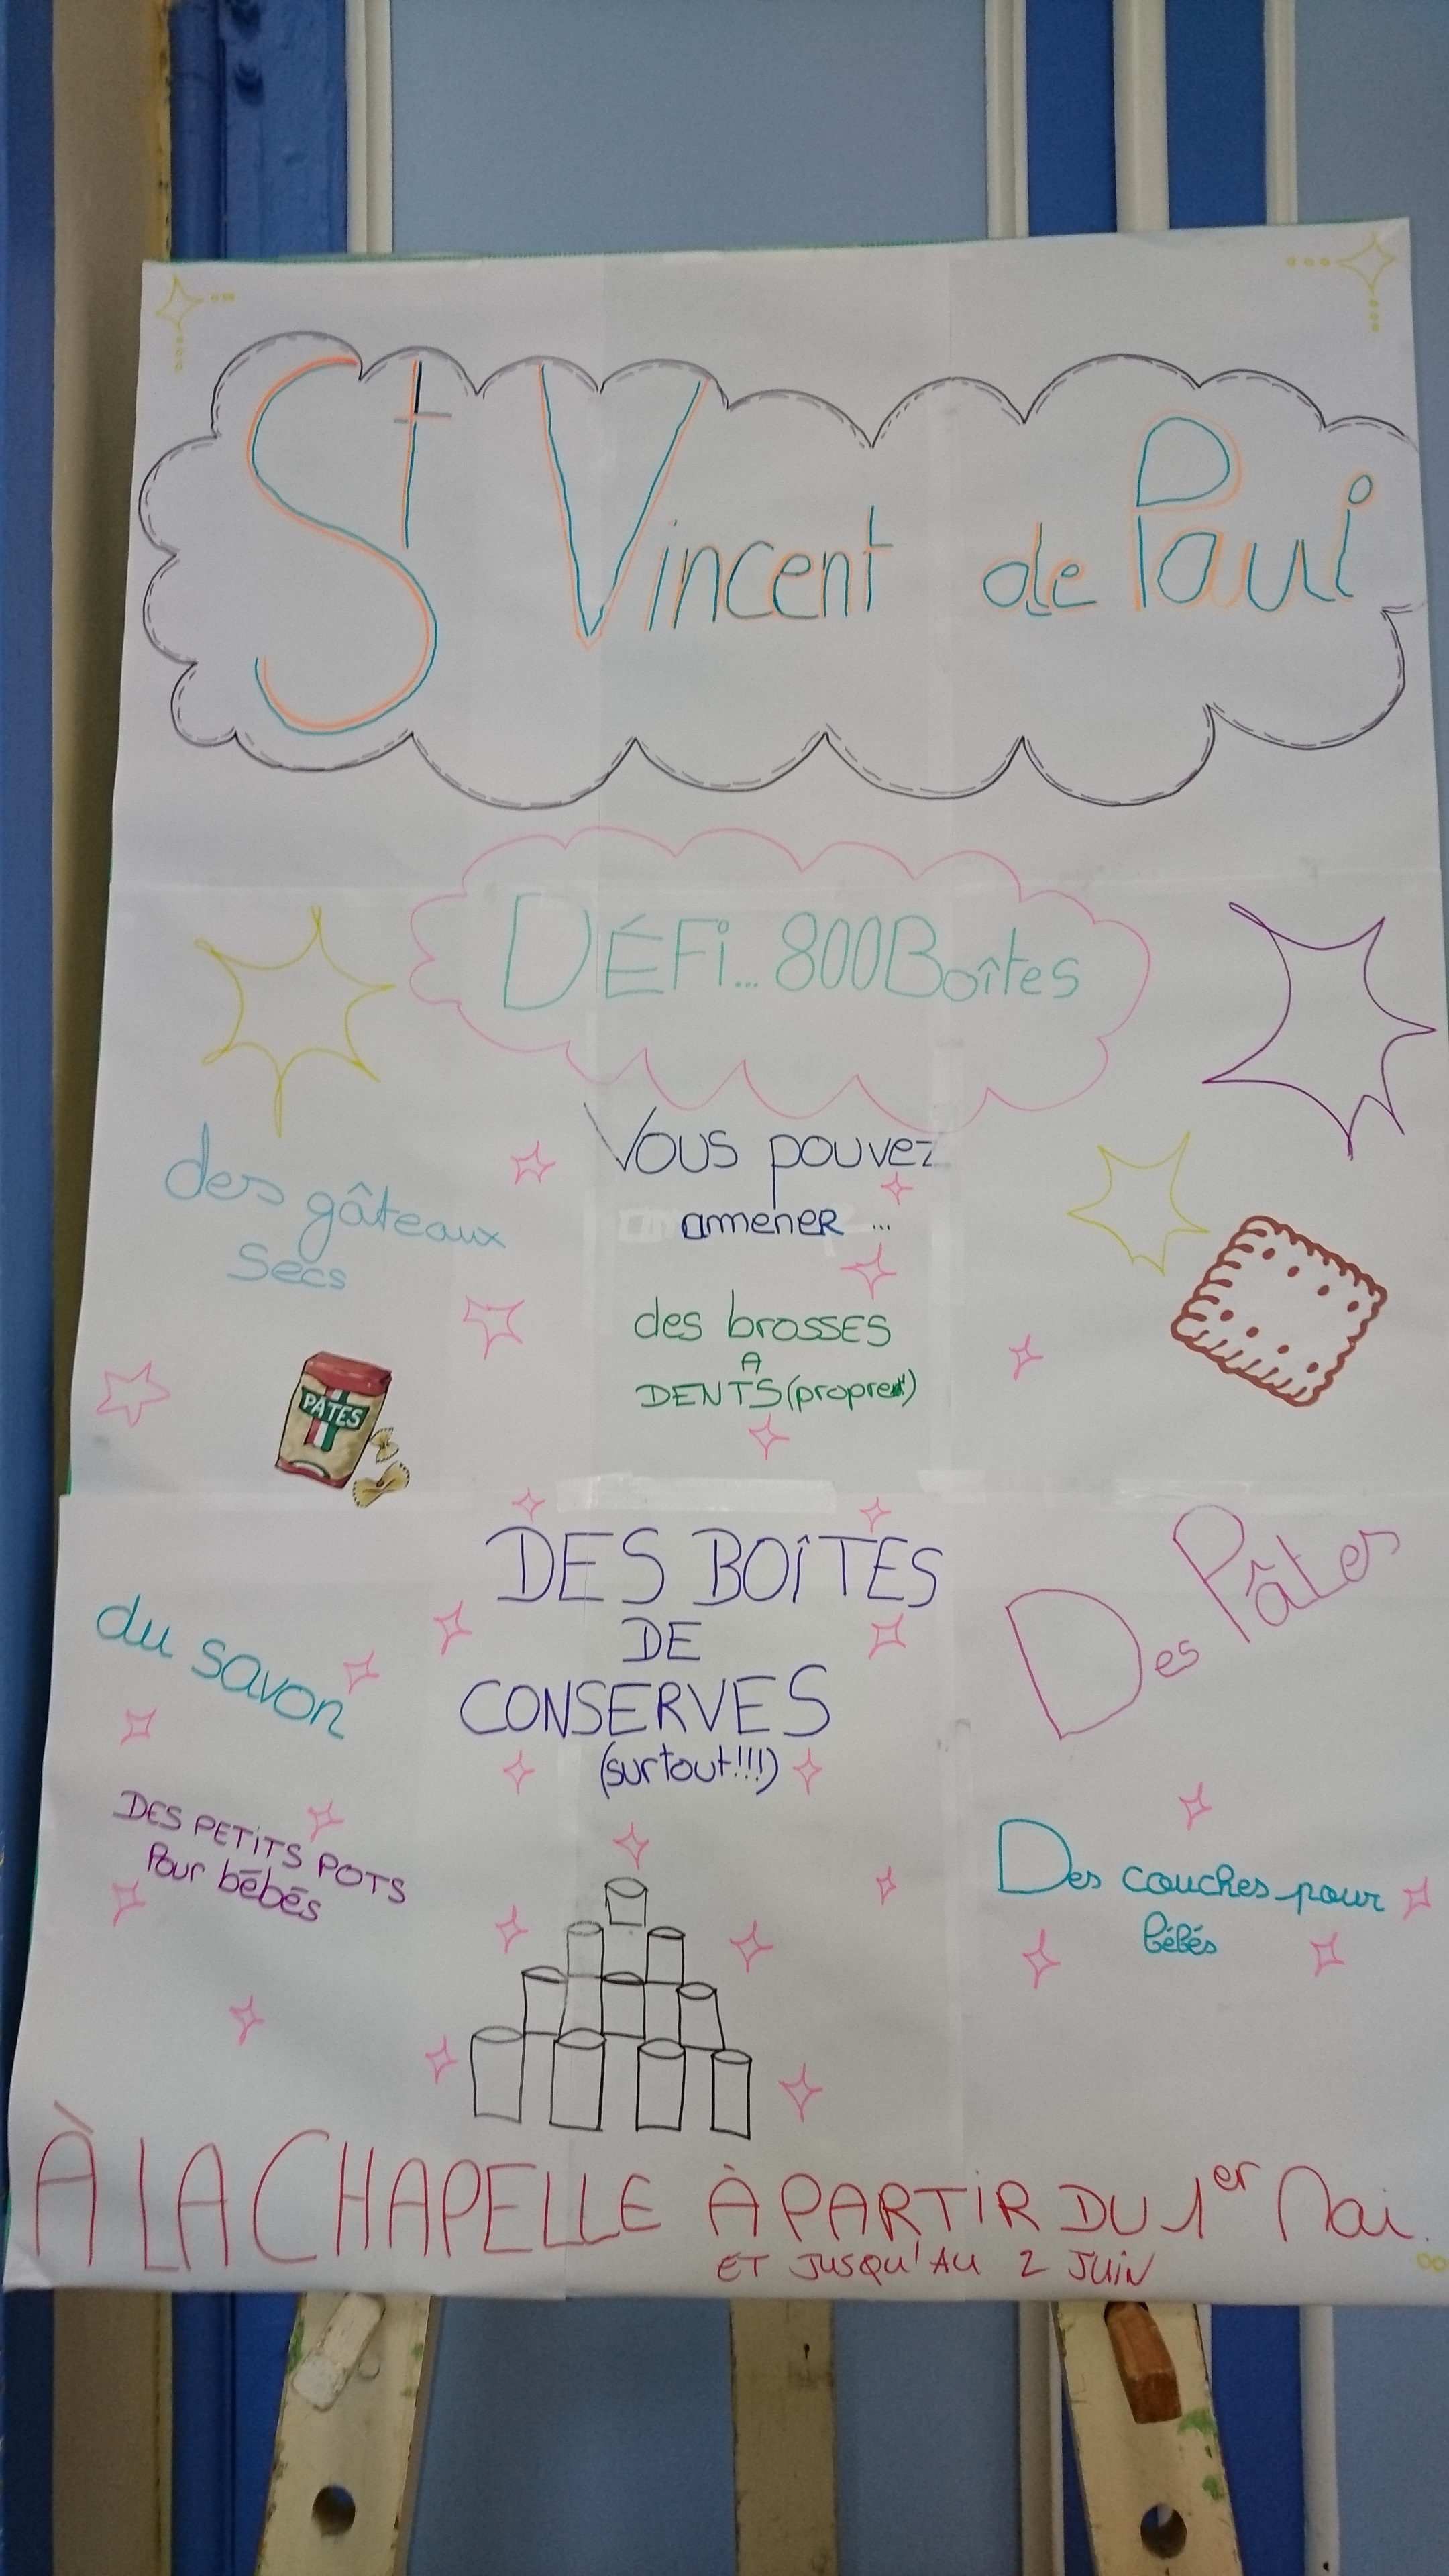 St Vincent de Paul
DÉFi... 800 Boîtes
Vous pouvez
amener ...
des gâteaux
secs
des brosses
A
DENTS (propre)
PATES
DES BOÎTES
DE
CONSERVES
(surtout!!!)
Des Pâtes
du savon
DES PETiTS POTS
Pour bébés
Des couches pour
bébés
À LA CHAPELLE À PARTiR DU 1er Mai.
ET JUSQU'AU 2 JUiN